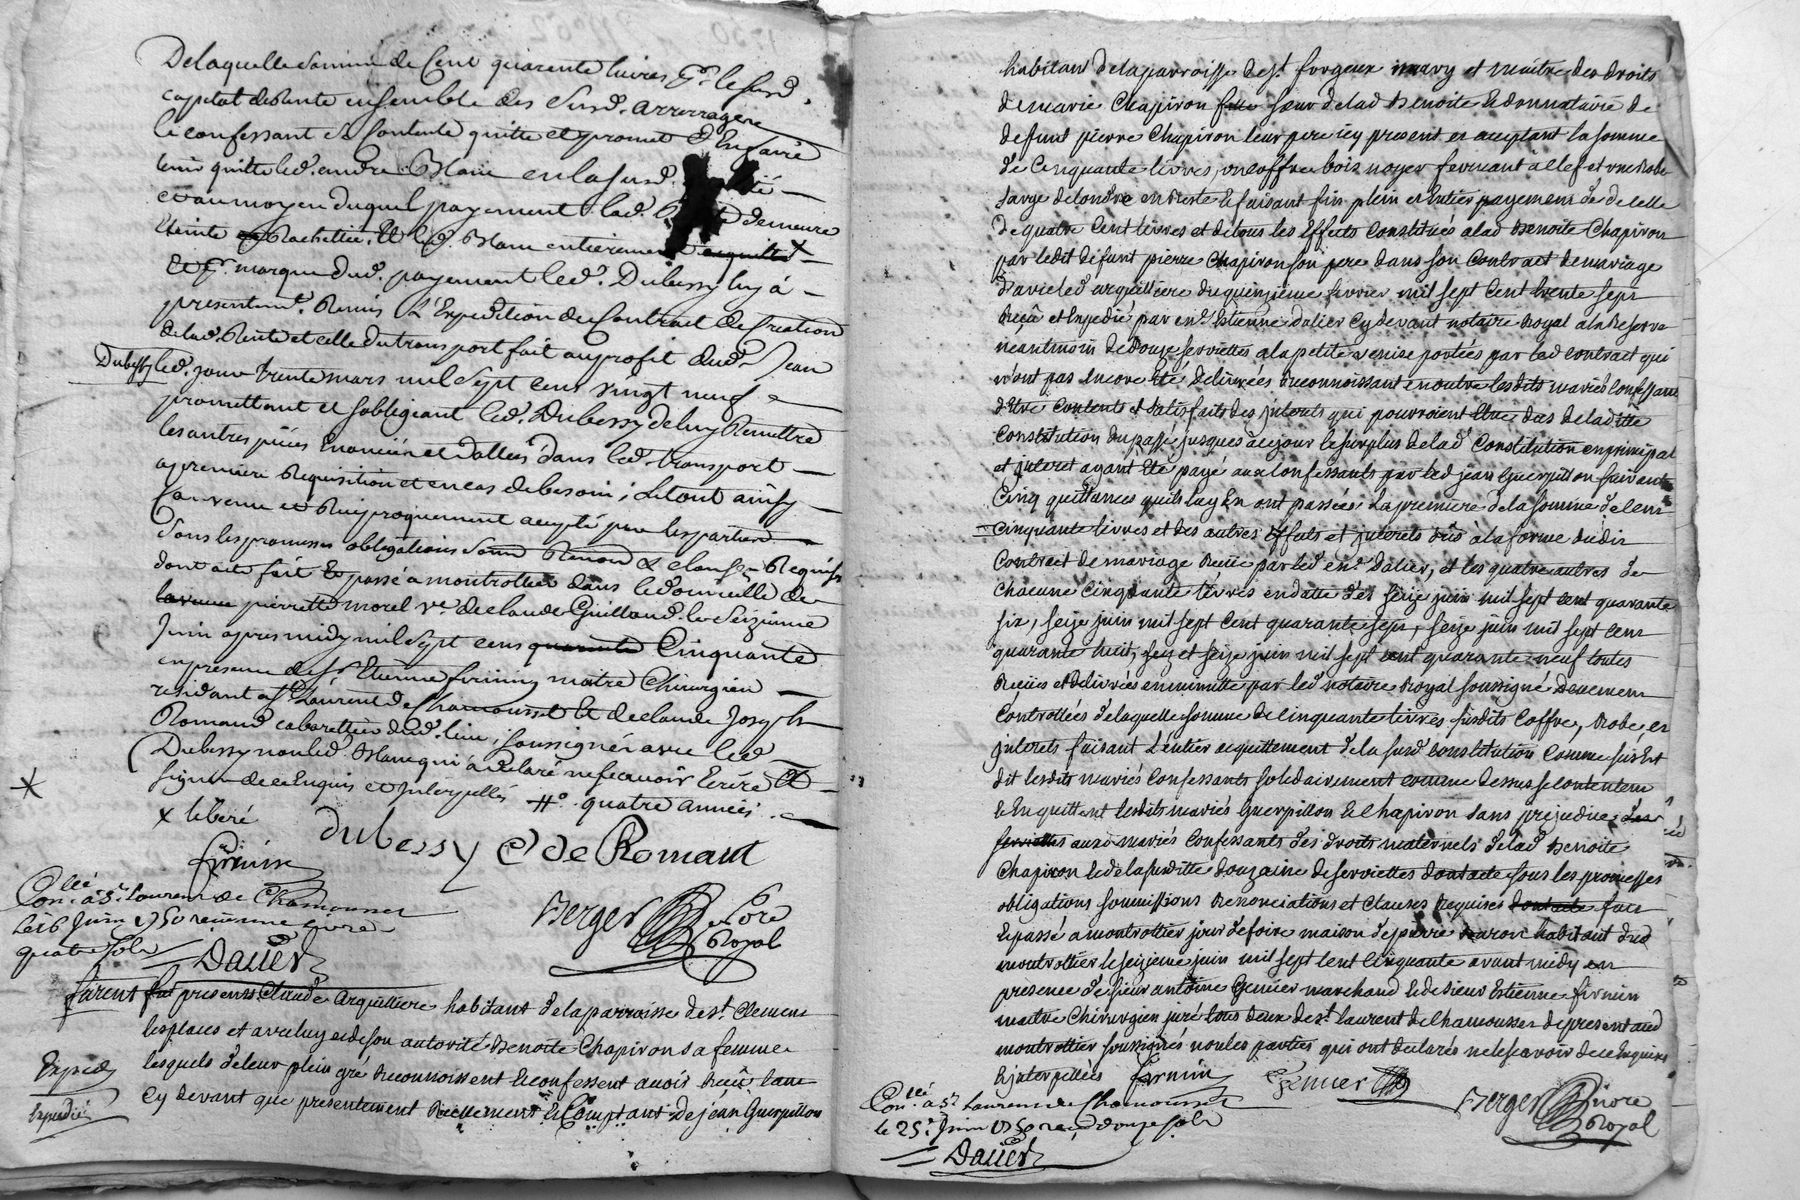 Delaquelle Somme de Cent quarente livres pr. le susd.
capital de Rente ensemble des Susd. arrerrages
le confessant Se Contente quitte et promet L'En faire
tenir quitte led. andré Blanc en la susd.
et au moyen duquel payement lad. demeure
Eteinte et Rachettée, Et led. Blanc entierement acquitté x
Et pr. marque dud. payement led. Dubessy luy à
presentemt. Remis L'Expedition du Contract de Creation
de lad. Rente et celle du transport fait au profit dud. Jean
Dubessy led. jour trente mars mil Sept cens vingt neuf
promettant et Sobligeant led. Dubessy de luy Remettre
les autres pièces Enoncées et Dattées dans led. transport
a premiere Requisition et en cas de besoin ; Le tout ainsy
Convenu et Reciproquement accepté par les parties
Sous les promesses obligations Soum. Renon. & clauses Requises
dont acte fait Et passé a montrottier dans le domicille de
la veuve pierrette morel ve. de claude Guilloud le Seizieme
Juin apres midy mil Sept cens quarante Cinquante
en presence de sr. Etienne firmin maitre Chirurgien
residant a St. Laurent de Chamousset Et de claude Joseph
Romand cabarettier dud. lieu, soussignés avec led.
Dubessy non led. Blanc qui a declaré ne sçcavoir Ecrire Et
signer de ce Enquis et Interpellés #o. quatre années
x libéré
dubessy C de Romant
firmin
Conllé. a St. Laurent de Chamousset
Le 16 Juin 1750 receu une livre
quatre sols
Dalier
Berger Nore Royal
furent fut presents Claude Arquilliere habitant de la parroisse de st. Clement
les places et avec luy et de son autorité Benoite Chapiron sa femme
lesquels de leur plein gré Reconnoissent et confessent avoir Reçû tant
Cy devant que presentement Réellement et Comptant de jean Guerpillon
Exped
Expedié
habitant de la parroisse de st. forgeux mary et maitre des droits
de marie Chapiron fille sœur de lad Benoite et donnataire de
defunt pierre Chapiron leur pere icy present et acceptant la somme
de Cinquante livres, un coffre bois noyer fermant à clef et une Robe
sarge de londre en Reste et faisant fin plein et Entier payement de celle
de quatre Cent livres et de tous les Effets Constitués a lad Benoite Chapiron
par ledit defunt pierre Chapiron son pere dans son Contract de mariage
d'avec led arquilliere du quinzieme fevrier mil sept Cent trente sept
Reçu et Expedié par me. Estienne dalier Cy devant notaire Royal a la Reserve
neantmoin de Douze serviettes a la petite venise portées par lad contract qui
n'ont pas encore Eté delivrées Reconnoissant en outre lesdits mariés confessants
d'Etre Contents et Satisfaits des jnterets qui pourroient Etre dûs de ladite
Constitution du passé jusques a ce jour le surplus de lad Constitution en principal
et jnteret ayant Eté payé aux confessants par led jean Guerpillon suivant
Cinq quittances qu'ils luy En ont passées, La premiere de la somme de Cent
cinquante livres et des autres Effets et jnterets dûs a la forme dudit
Contract de mariage Reçüe par led me. Dalier, et les quatre autres de
chacune Cinquante livres en datte des seize juin mil sept cent quarante
six, seize juin mil sept Cent quarante sept, seize juin mil sept Cent
quarante huit, et seize juin mil sept cent quarante neuf toutes
Reçües et delivrées en minutte par led notaire Royal soussigné duement
Controllées de laquelle somme de cinquante livres susdits Coffre, Robe, et
jnterets faisant L'Entier acquittement de la susd constitution Comme sus Est
dit lesdits mariés Confessants solidairement comme dessus se Contentent
et En quittent lesdits mariés Guerpillon et Chapiron sans prejudice des
serviettes auxd mariés Confessants des droits maternels de lad Benoite
Chapiron et de la susditte douzaine de serviettes dont acte sous les promesses
obligations soumissions Renonciations et Clauses Requises dont acte fait
Et passé a montrottier jour de foire maison de pierre baron habitant dud
montrottier le seizieme juin mil sept Cent Cinquante avant midy en
presence de sieur antoine Genier marchand et de sieur Estienne firmin
maitre Chirurgien juré tous deux de st. laurent de Chamousset de present aud
montrottier soussignés non les parties qui ont declarés ne le scavoir de ce Enquises
Et jnterpellées firmin Genier
Conllé. a St. Laurent de Chamousset
le 25e. Juin 1750 reçu douze sols
Dalier
Berger Nore Royal